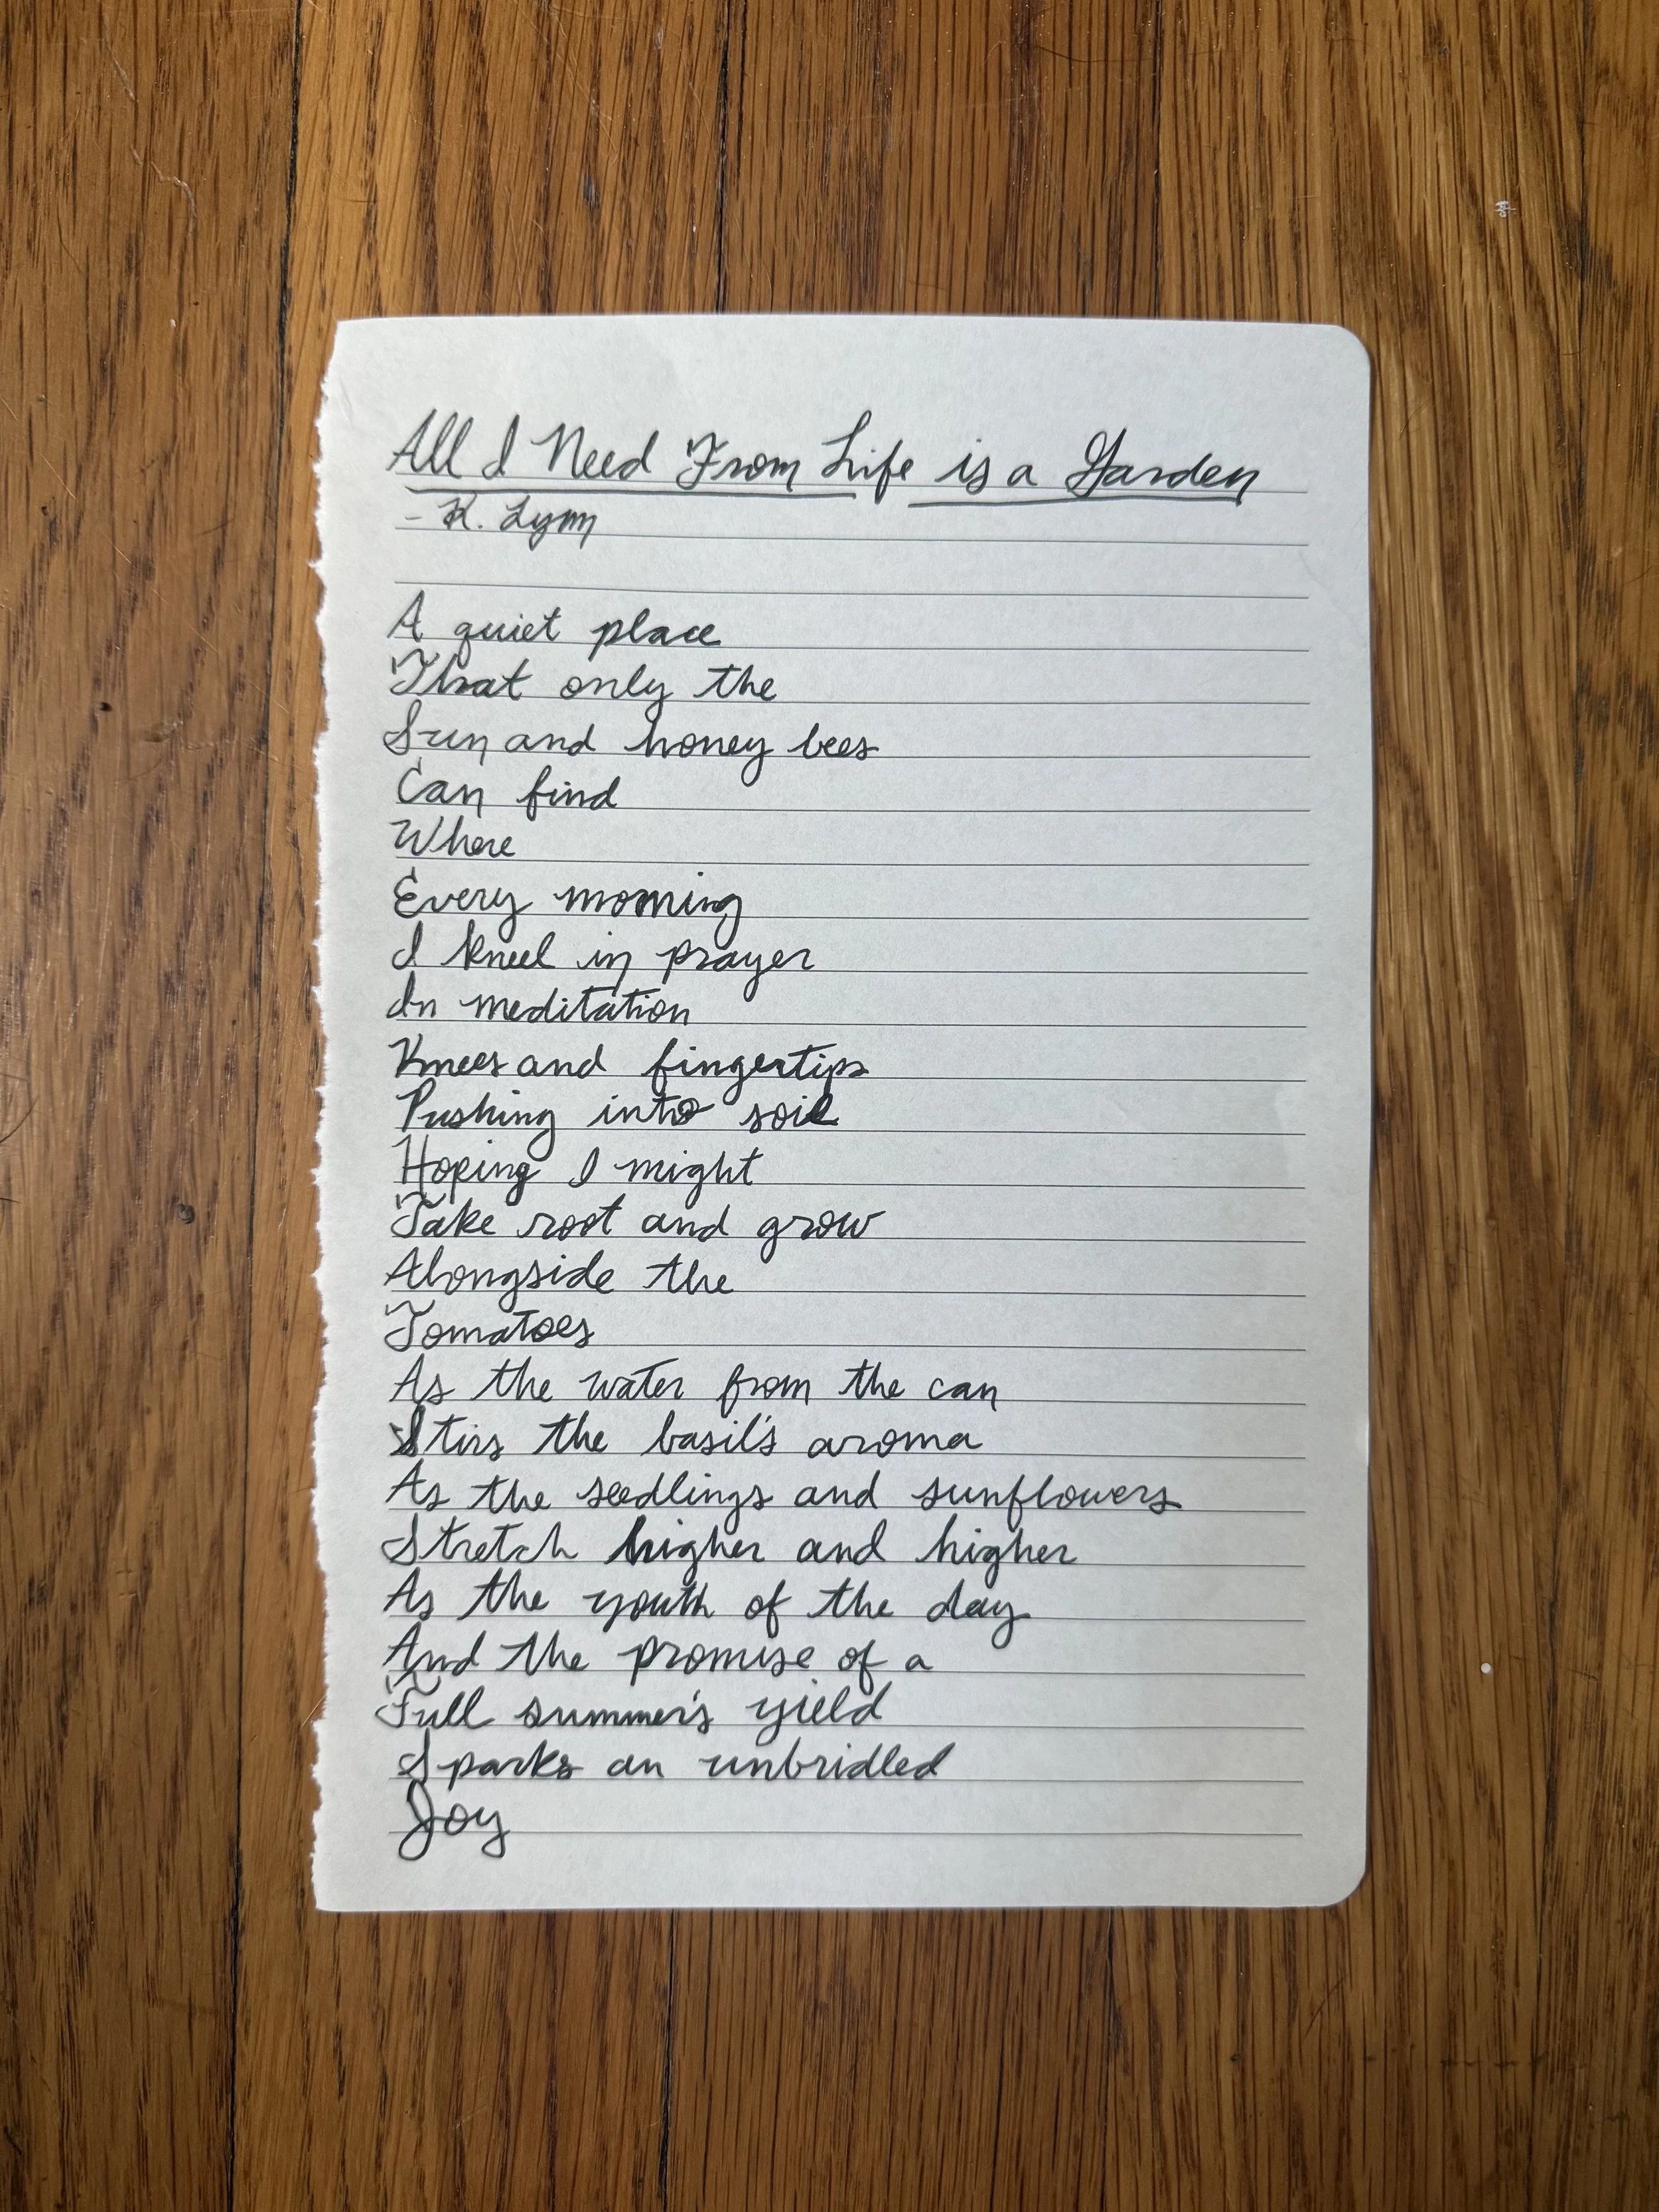 All I Need From Life is a Garden
- K. Lynn
A quiet place
That only the
Sun and honey bees
Can find
Where
Every morning
I kneel in prayer
In meditation
Knees and fingertips
Pushing into soil
Hoping I might
Take root and grow
Alongside the
Tomatoes
As the water from the can
Stirs the basil's aroma
As the seedlings and sunflowers
Stretch higher and higher
As the youth of the day
And the promise of a
Full summer's yield
Sparks an unbridled
Joy